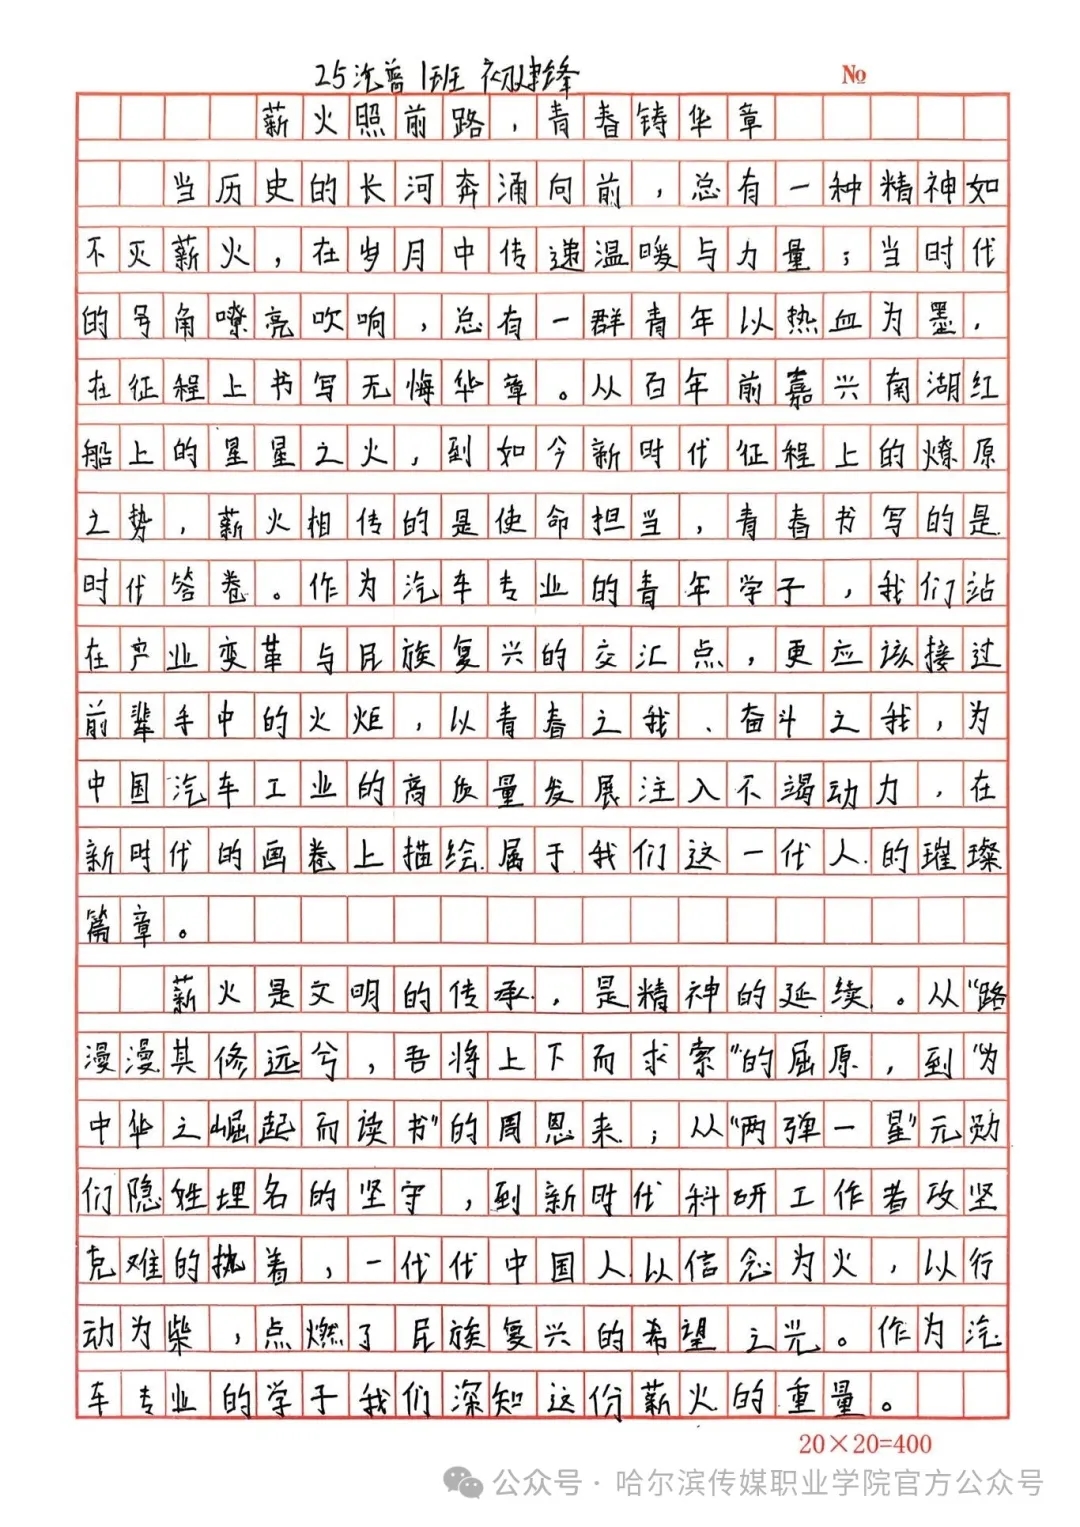 25汽普1班 初建锋
№
薪火照前路，青春铸华章
当历史的长河奔涌向前，总有一种精神如
不灭薪火，在岁月中传递温暖与力量；当时代
的号角嘹亮吹响，总有一群青年以热血为墨，
在征程上书写无悔华章。从百年前嘉兴南湖红
船上的星星之火，到如今新时代征程上的燎原
之势，薪火相传的是使命担当，青春书写的是
时代答卷。作为汽车专业的青年学子，我们站
在产业变革与民族复兴的交汇点，更应该接过
前辈手中的火炬，以青春之我、奋斗之我，为
中国汽车工业的高质量发展注入不竭动力，在
新时代的画卷上描绘属于我们这一代人的璀璨
篇章。
薪火是文明的传承，是精神的延续。从“路
漫漫其修远兮，吾将上下而求索”的屈原，到“为
中华之崛起而读书”的周恩来；从“两弹一星”元勋
们隐姓埋名的坚守，到新时代科研工作者攻坚
克难的执着，一代代中国人以信念为火，以行
动为柴，点燃了民族复兴的希望之光。作为汽
车专业的学子我们深知这份薪火的重量。
20×20=400
公众号·哈尔滨传媒职业学院官方公众号